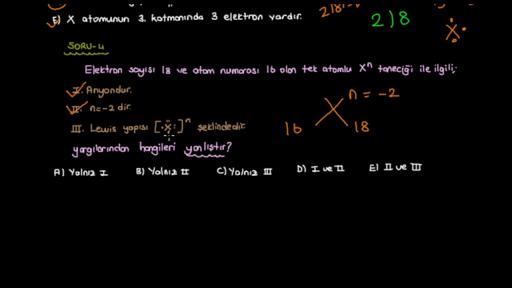 E) X atomunun 3. katmanında 3 elektron vardır.
2)8
SORU-4
Elektron sayısı 18 ve atom numarası 16 olan tek atomlu Xⁿ taneciği ile ilgili;
I. Anyondur.
II. n=-2 dir.
III. Lewis yapısı [:Ẍ:]ⁿ şeklindedir.
n = -2
16 X 18
yargılarından hangileri yanlıştır?
A) Yalnız I B) Yalnız II C) Yalnız III D) I ve II E) II ve III